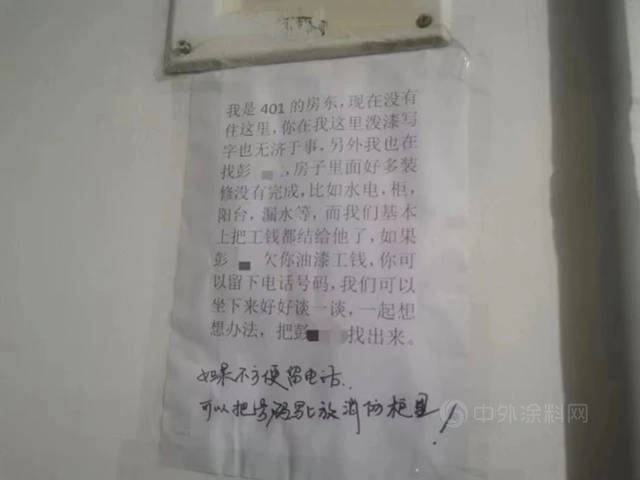 我是 401 的房东，现在没有
住这里，你在我这里泼漆写
字也无济于事，另外我也在
找彭，房子里面好多装
修没有完成，比如水电，柜，
阳台，漏水等，而我们基本
上把工钱都结给他了，如果
彭 欠你油漆工钱，你可
以留下电话号码，我们可以
坐下来好好谈一谈，一起想
想办法，把彭 找出来。
如果不方便留电话，
可以把号码写上放消防柜里！
中外涂料网